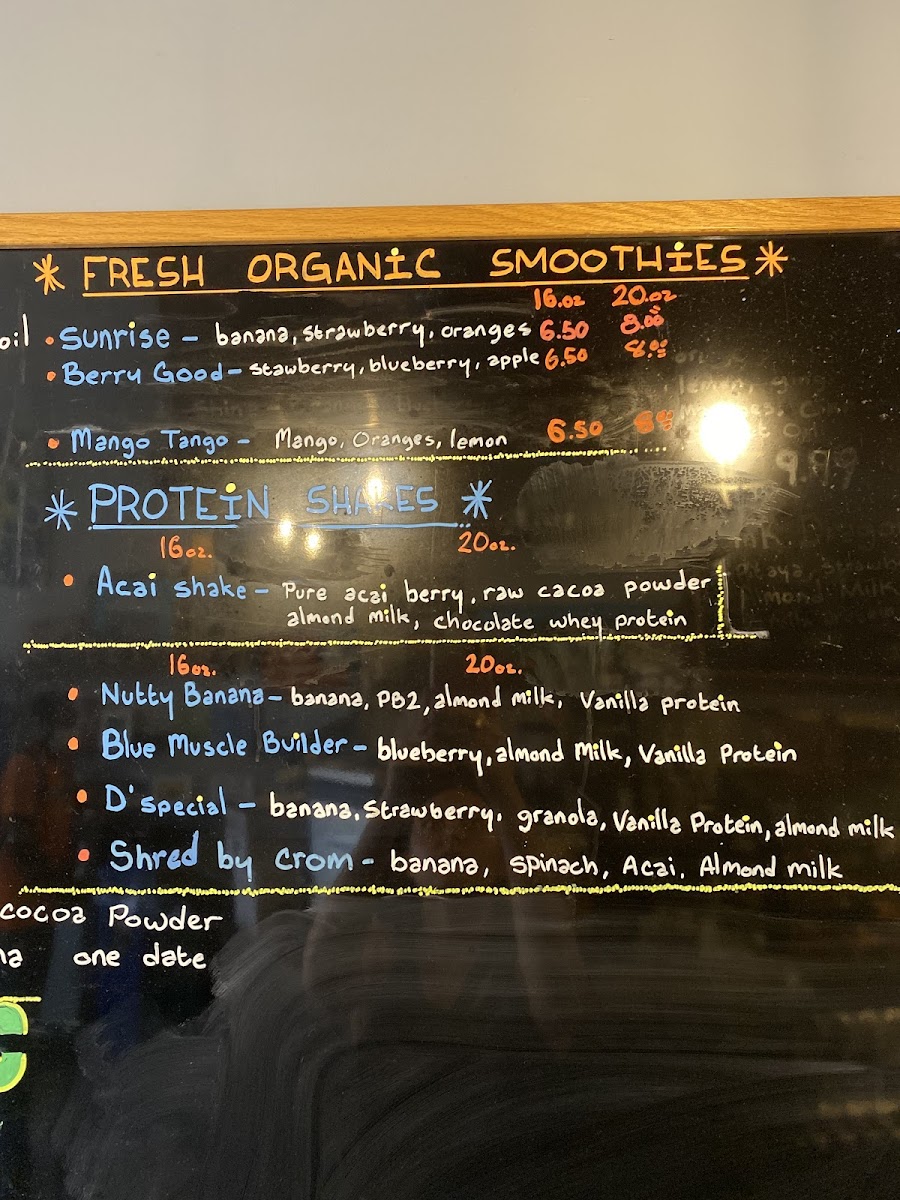 * FRESH ORGANIC SMOOTHIES *
16.oz 20.oz
oil • Sunrise – banana, strawberry, oranges 6.50 8.00
• Berry Good – stawberry, blueberry, apple 6.50 8.00
• Mango Tango – Mango, Oranges, lemon 6.50
* PROTEIN SHAKES *
16oz. 20oz.
• Acai shake – Pure acai berry, raw cacoa powder
almond milk, chocolate whey protein
16oz. 20oz.
• Nutty Banana – banana, PB2, almond milk, Vanilla protein
• Blue Muscle Builder – blueberry, almond Milk, Vanilla Protein
• D'special – banana, Strawberry, granola, Vanilla Protein, almond milk
• Shred by crom – banana, Spinach, Acai, Almond milk
cocoa Powder
na one date